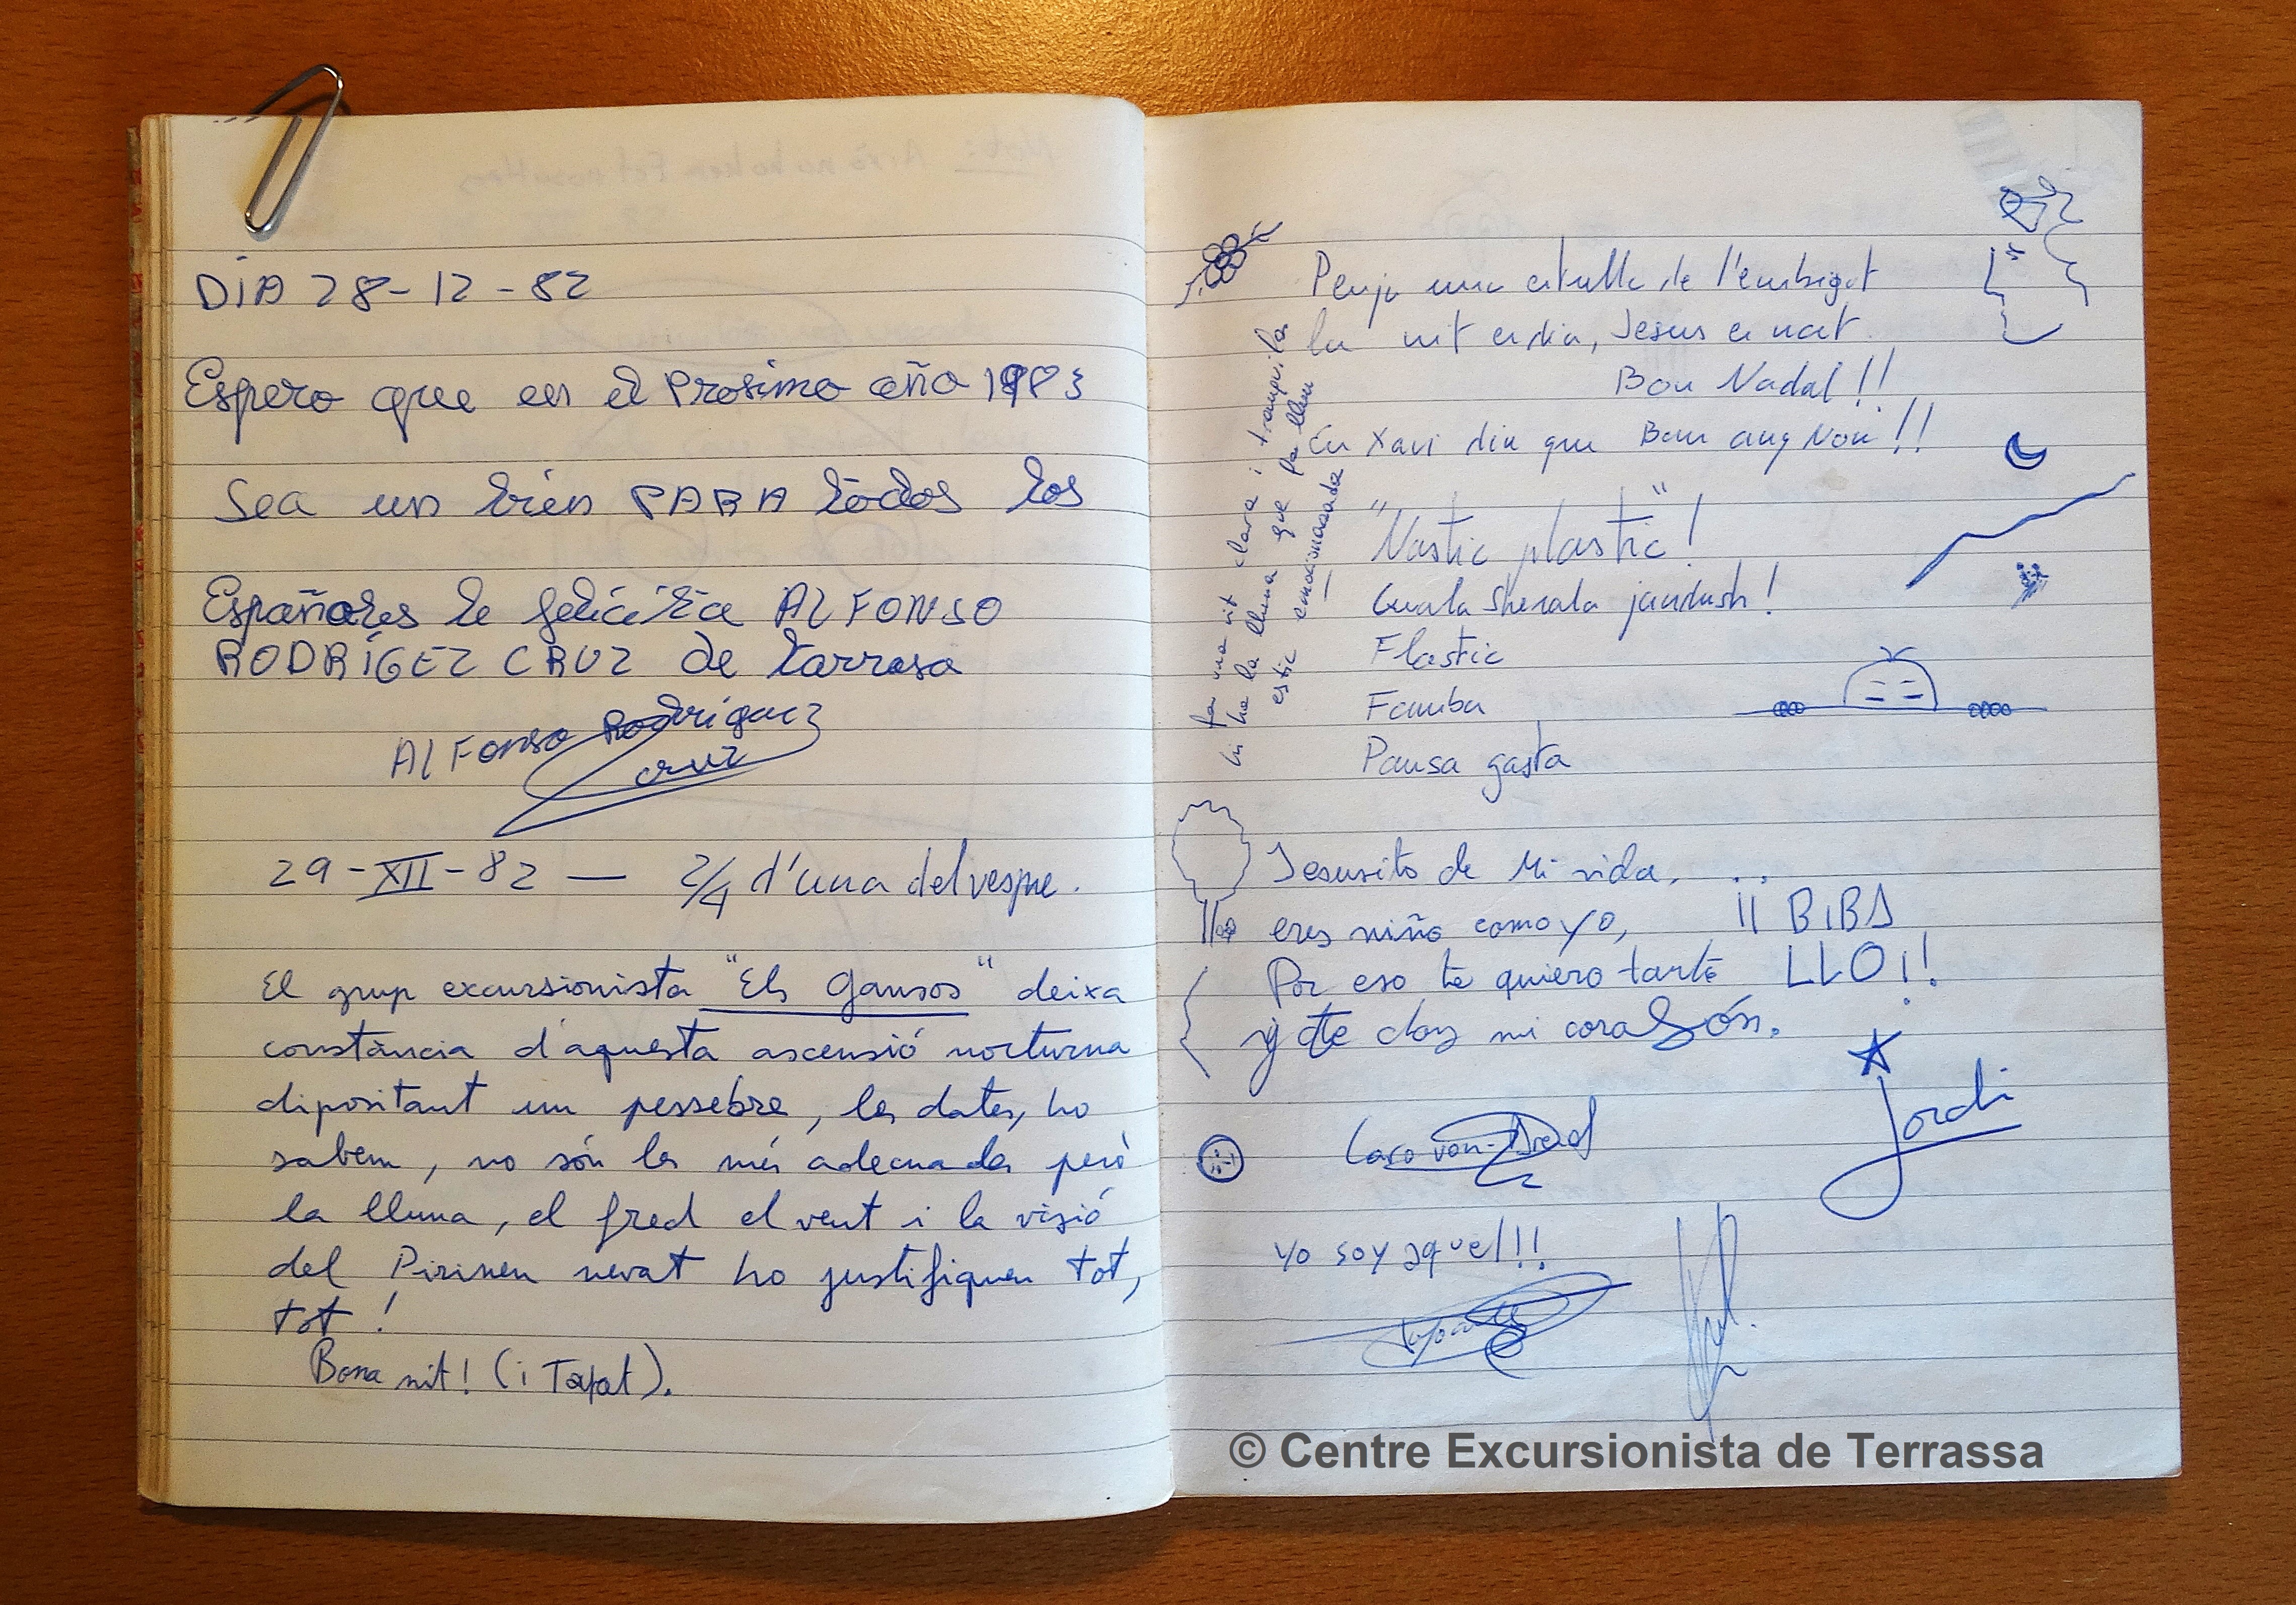 DIA 28-12-82
Espero que en el Prosimo año 1983
Sea un bien PARA todos los
Españoles le felicita ALFONSO
RODRÍGEZ CRUZ de tarrasa
AlFonso Rodriguez
cruz
29-XII-82 — 2/4 d'una del vespre.
El grup excursionista "Els Gansos" deixa
constància d'aquesta ascensió nocturna
dipositant un pessebre, les dates, ho
sabem, no són les més adecuades però
la lluna, el fred el vent i la visió
del Pirineu nevat ho justifiquen tot,
tot!
Bona nit! (i Tapat).
Penja una estrella de l'embigat
la nit es dia, Jesus es nat.
Bon Nadal!!
En Xavi diu que Bon any Nou!!
fa una nit clara i tranquila
hi ha la lluna que fa llum
estic emocionada
"Nastic plastic"!
Flastic
Famba
Pansa gasta
Jesusito de Mi vida, ...
eres niño como yo,
Por eso te quiero tanto
y te doy mi corasón.
¡¡ BIBA
LLO ¡!
Jordi
yo soy aquel!!!
© Centre Excursionista de Terrassa